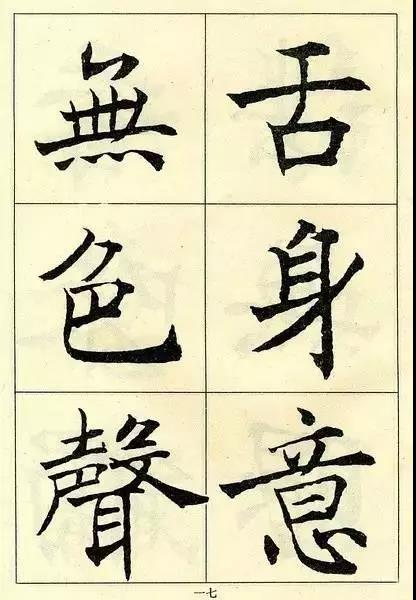 舌身意
無色聲
一七